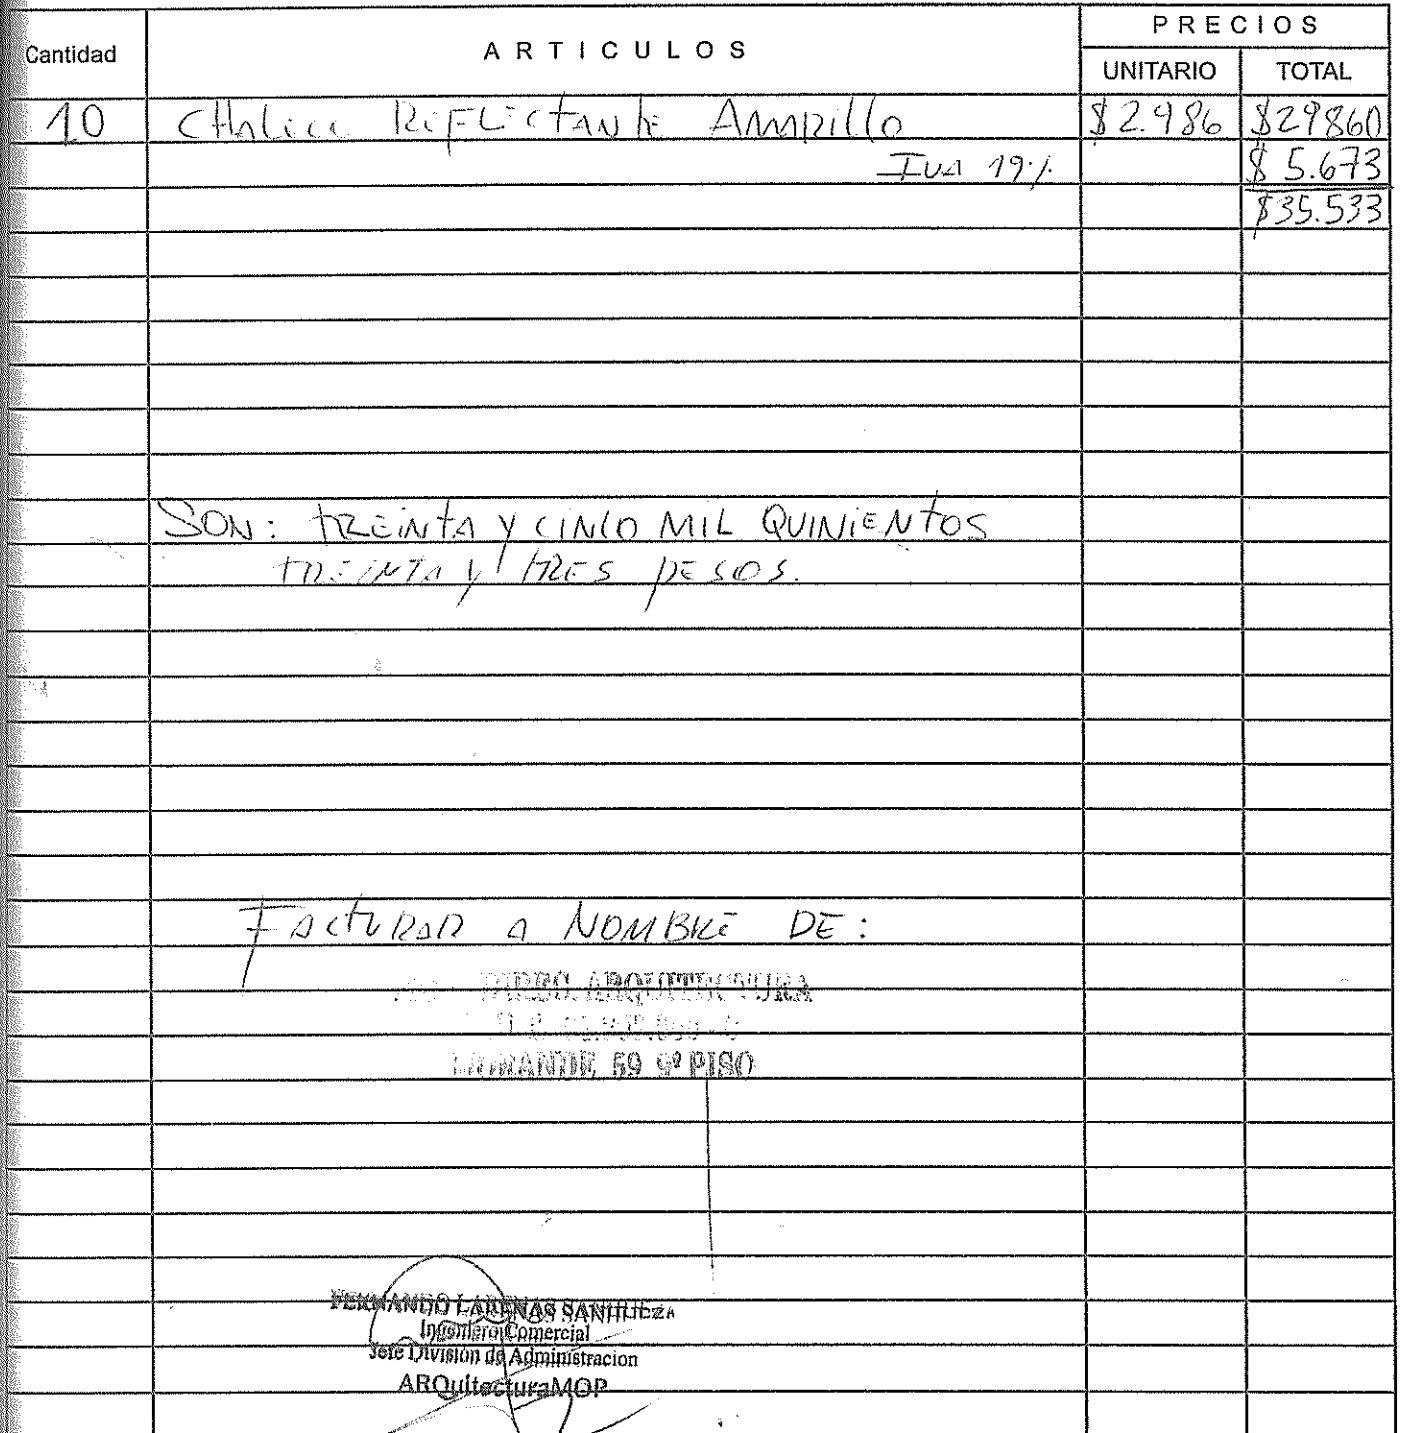 PRECIOS
Cantidad ARTICULOS UNITARIO TOTAL
10 CHaleco Reflectante Amarillo $2.986 $29860
IVA 19% $ 5.673
$35.533
SON: TREINTA Y CINCO MIL QUINIENTOS
TREINTA Y TRES PESOS.
FACTURAR A NOMBRE DE:
DIREC. ARQUITECTURA
MORANDE, 59 9º PISO
FERNANDO LARENAS SANHUEZA
Ingeniero Comercial
Jefe Division de Administracion
ARQuitecturaMOP